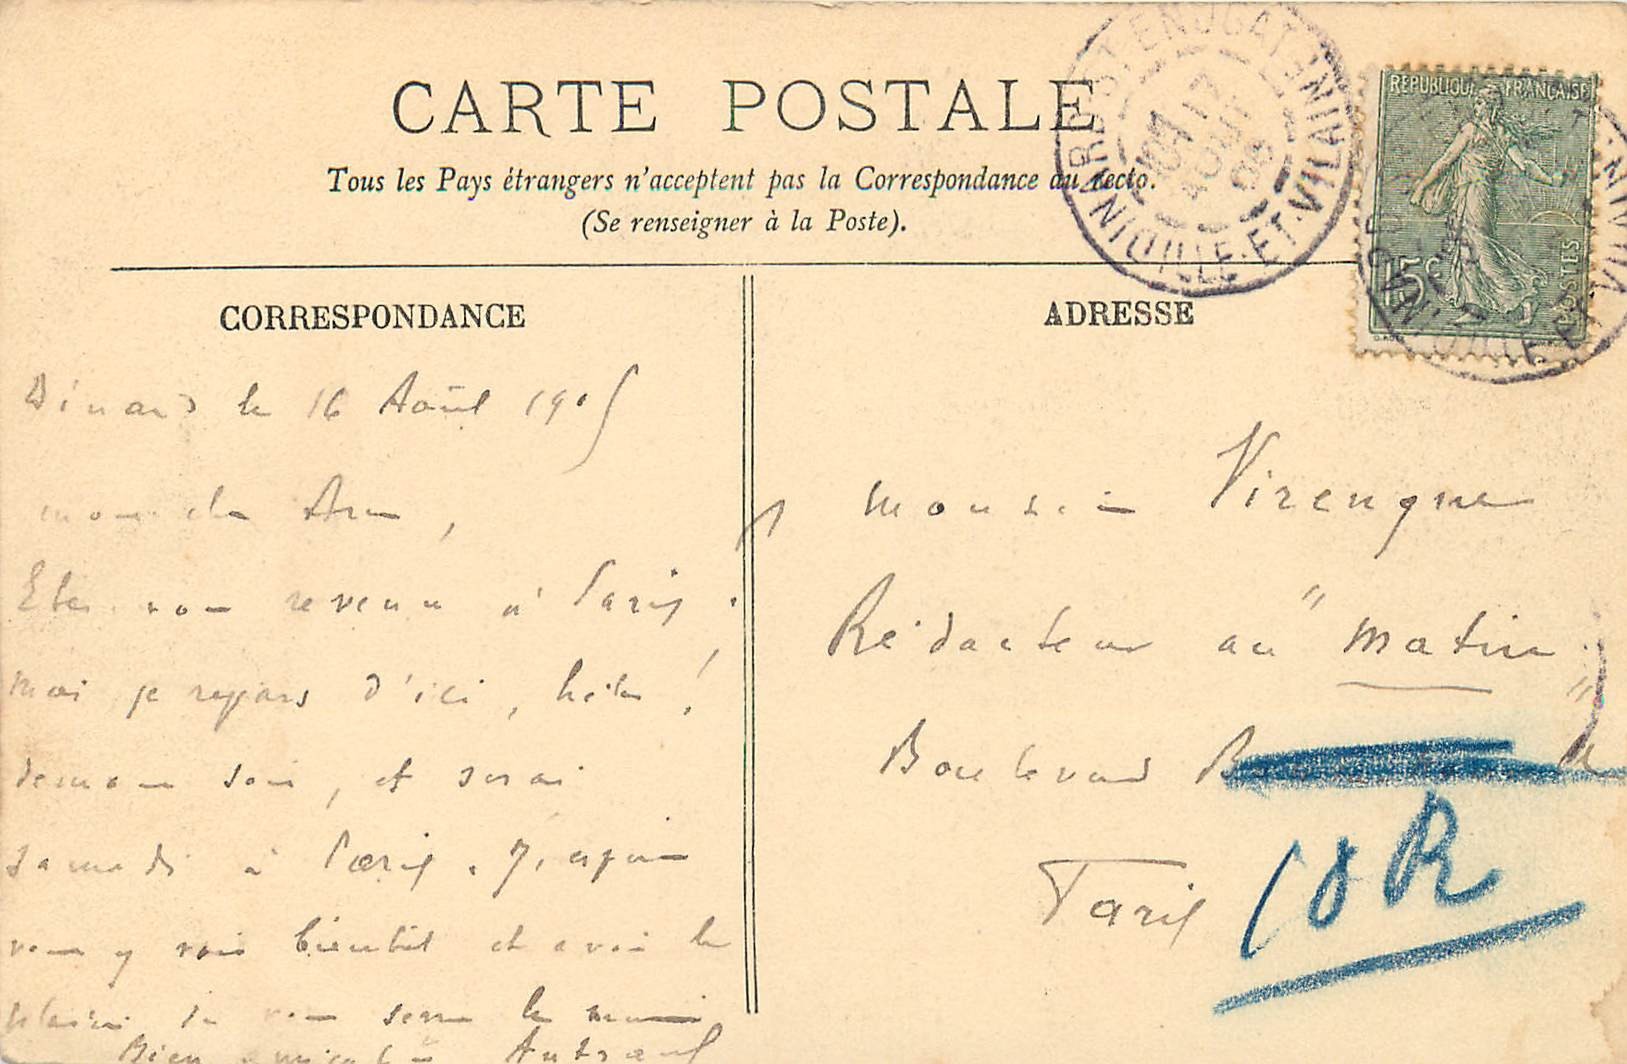 CARTE POSTALE
Tous les Pays étrangers n'acceptent pas la Correspondance au recto.
(Se renseigner à la Poste).
ST-ENOGAT-DINARD
ILLE-ET-VILAINE
17
AOUT
05
REPUBLIQUE FRANÇAISE
15c
POSTES
CORRESPONDANCE
Dinard le 16 Août 1905
mon cher Ami,
Etes vous revenu à Paris.
Moi je repars d'ici, hélas!
demain soir, et serai
samedi à Paris. J'espère
vous y voir bientôt et avoir le
plaisir de vous serrer la main
Bien amicalement
ADRESSE
Monsieur Virengue
Rédacteur au "Matin"
Boulevard
Paris 18 R